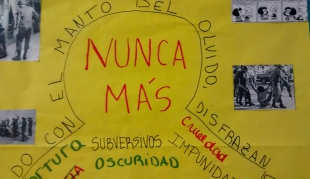 DO CON EL MANTO DEL OLVIDO, DISFRAZAN
NUNCA
MÁS
SUBVERSIVOS
OSCURIDAD
Crueldad
IMPUNIDA
ortura